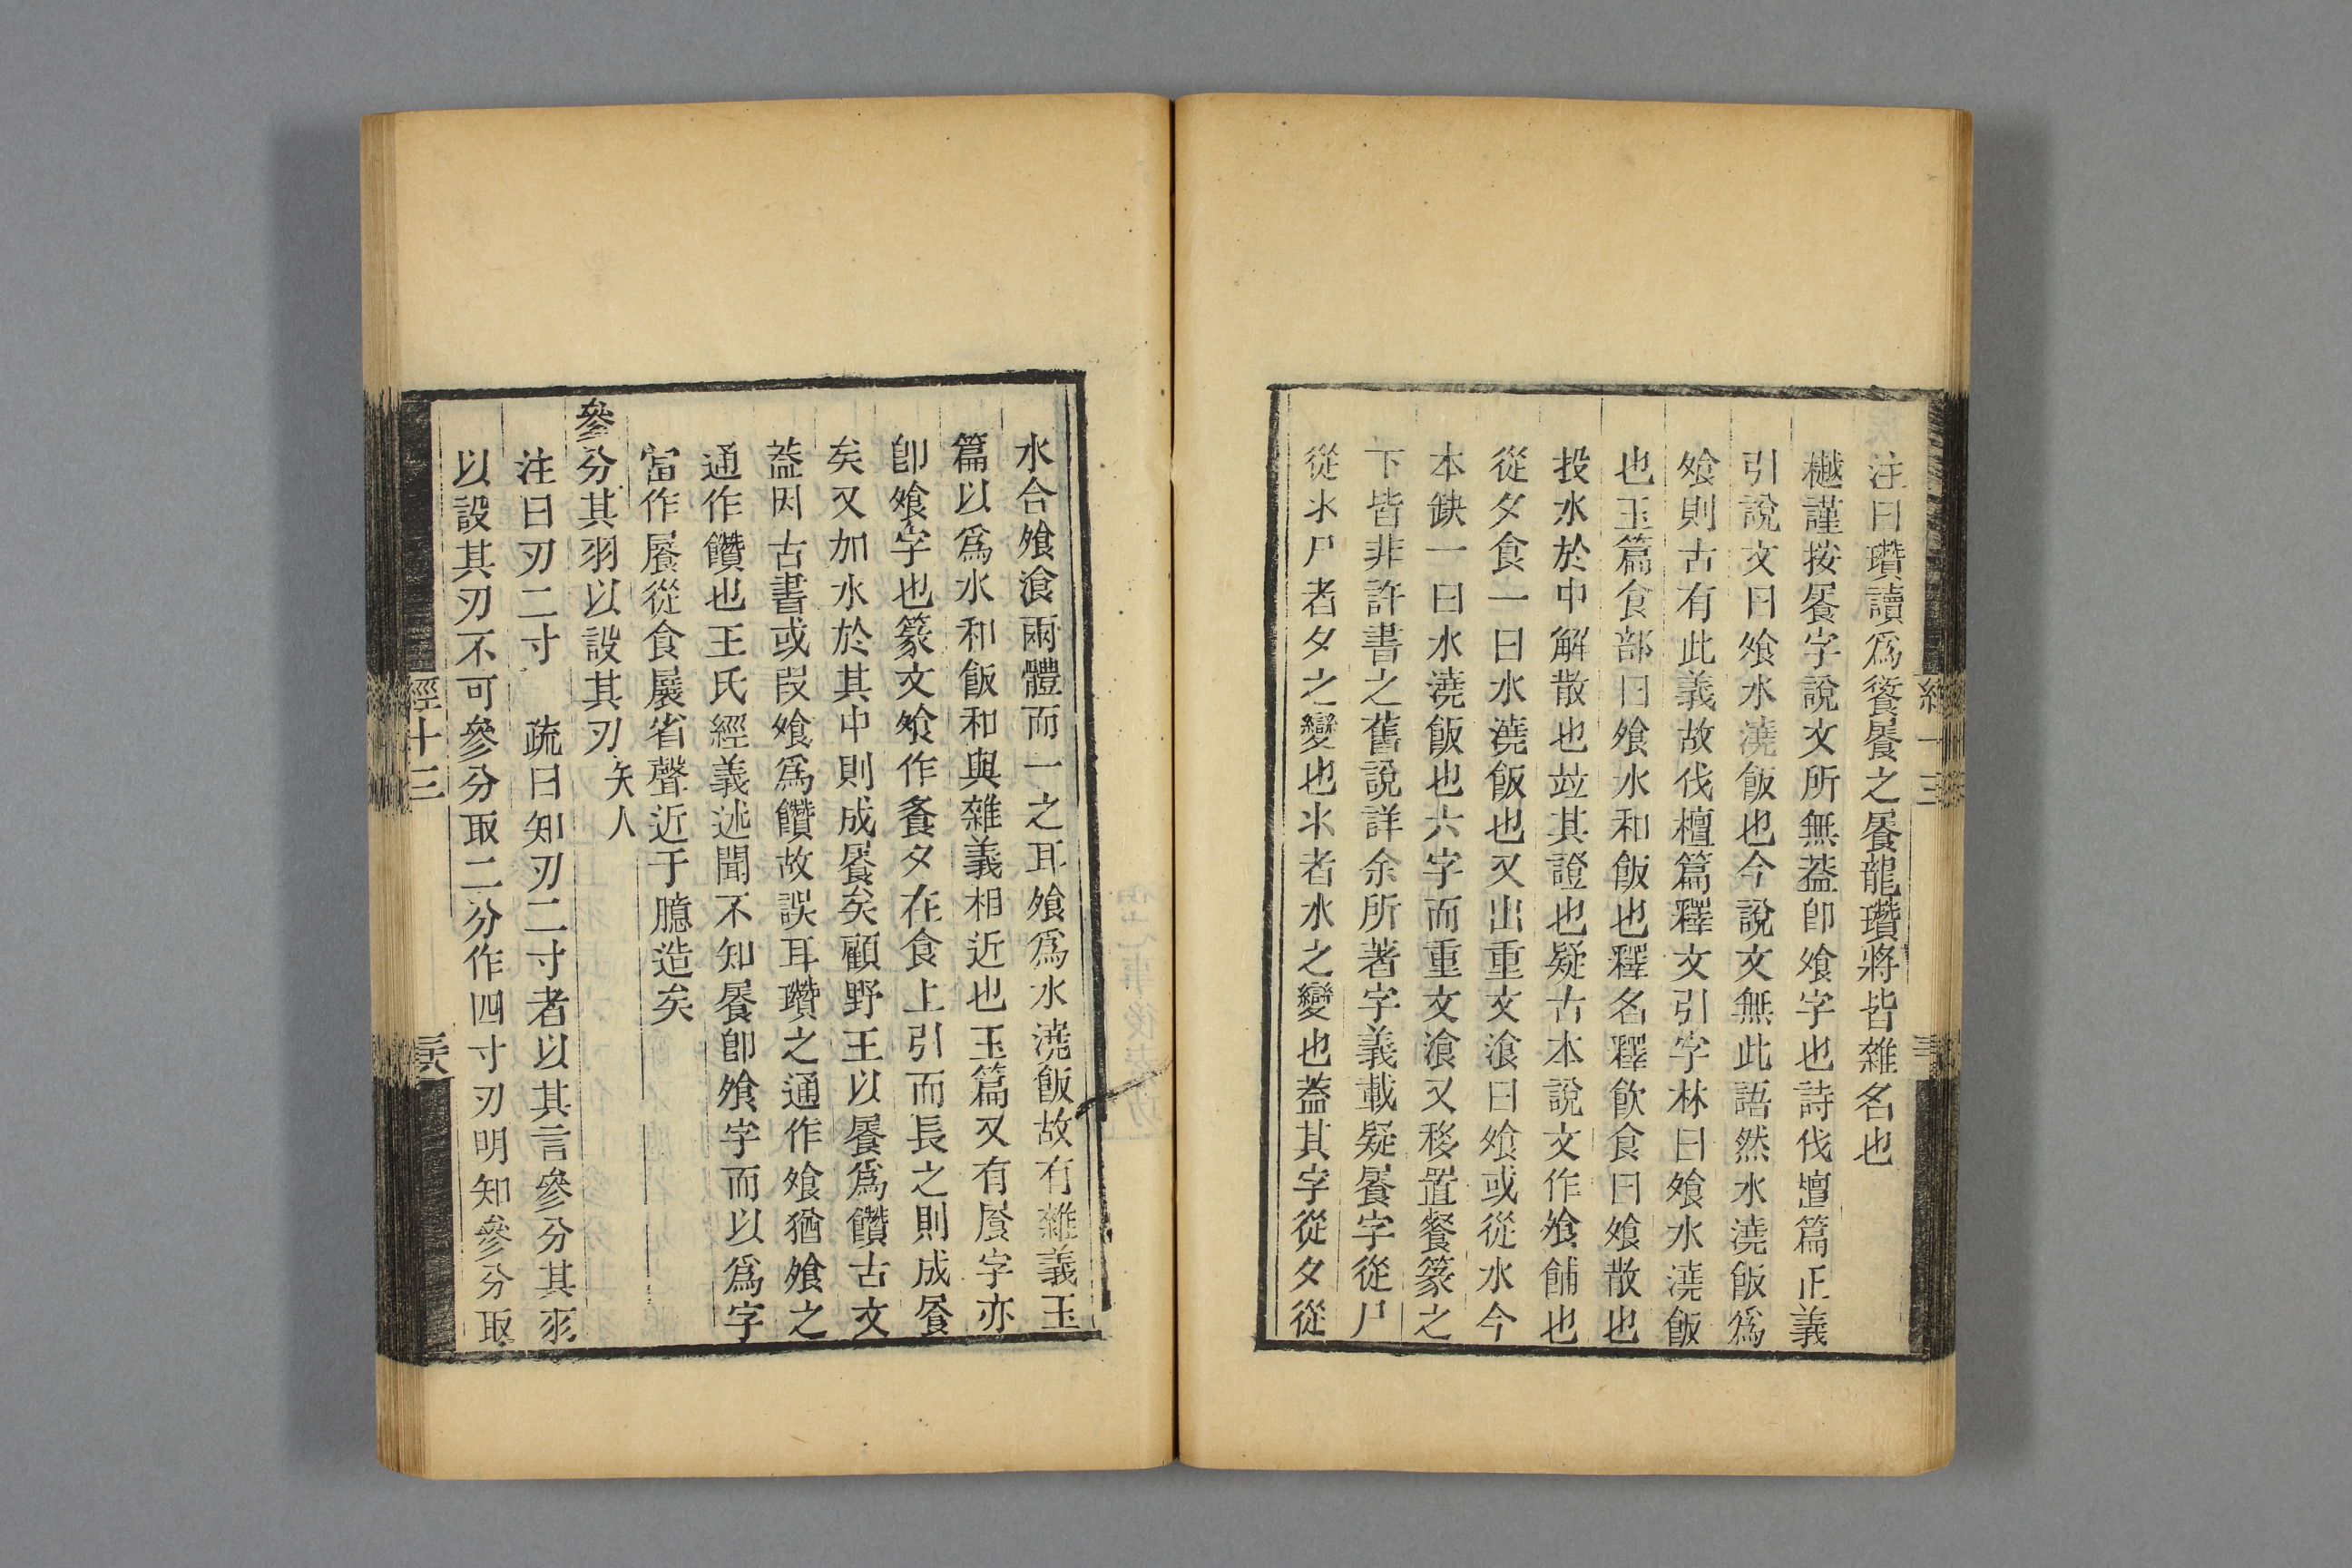 注曰瓚讀爲餐䬧之䬧龍瓚將皆雜名也
樾謹按䬧字說文所無葢卽飧字也詩伐檀篇正義
引說文曰飧水澆飯也今說文無此語然水澆飯爲
飧則古有此義故伐檀篇釋文引字林曰飧水澆飯
也玉篇食部曰飧水和飯也釋名釋飮食曰飧散也
投水於中解散也竝其證也疑古本說文作飧餔也
從夕食一曰水澆飯也又出重文湌曰飧或從水今
本缺一曰水澆飯也六字而重文湌又移置餐篆之
下皆非許書之舊說詳余所著字義載疑䬧字從尸
從氺尸者夕之變也氺者水之變也葢其字從夕從
水合飧湌兩體而一之耳飧爲水澆飯故有雜義玉
篇以爲水和飯和與雜義相近也玉篇又有𩚵字亦
卽飧字也篆文飧作飱夕在食上引而長之則成𩚵
矣又加水於其中則成䬧矣顧野王以䬧爲饡古文
葢因古書或叚飧爲饡故誤耳瓚之通作飧猶飧之
通作饡也王氏經義述聞不知䬧卽飧字而以爲字
當作䬧從食㞡省聲近于臆造矣
參分其羽以設其刃矢人
注曰刃二寸 疏曰知刃二寸者以其言參分其羽
以設其刃不可參分取二分作四寸刃明知參分取
經十三